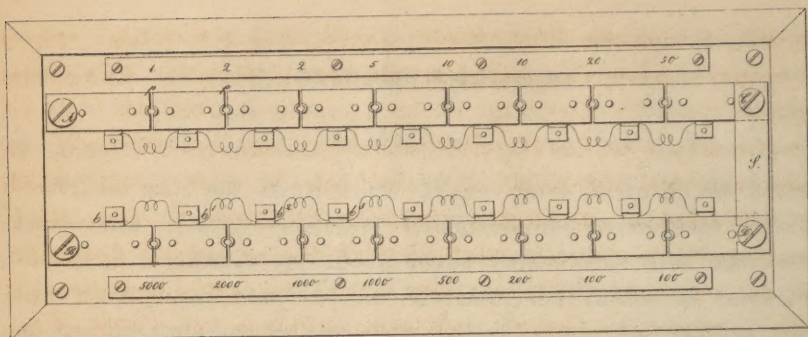 1 2 2 5 10 10 20 50
A C
S.
b b¹ b² b³
B D
5000 2000 1000 1000 500 200 100 100